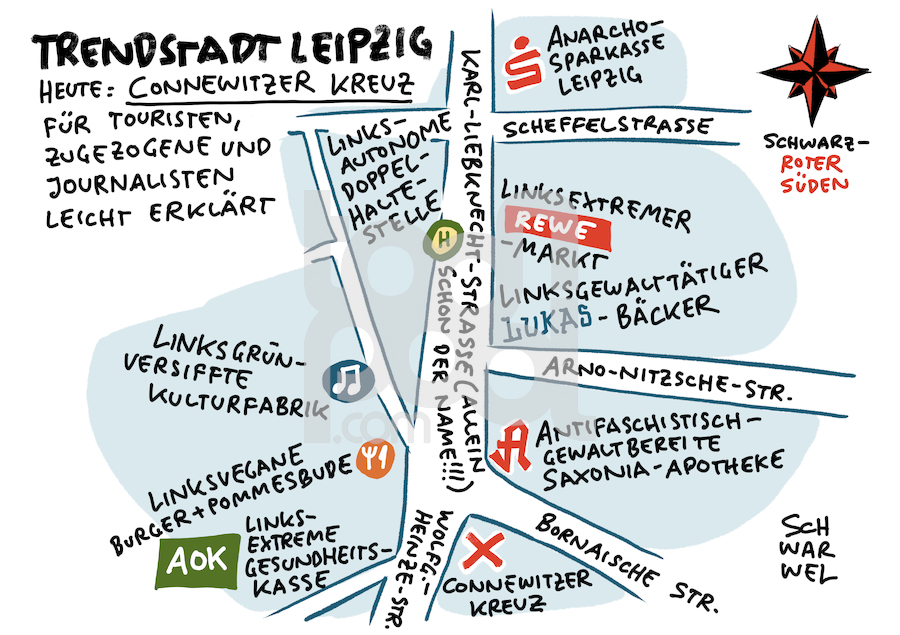 TRENDSTADT LEIPZIG
HEUTE: CONNEWITZER KREUZ
FÜR TOURISTEN,
ZUGEZOGENE UND
JOURNALISTEN
LEICHT ERKLÄRT
ANARCHO-
SPARKASSE
LEIPZIG
SCHWARZ-
ROTER
SÜDEN
SCHEFFELSTRASSE
LINKS-
AUTONOME
DOPPEL-
HALTE-
STELLE
H
KARL-LIEBKNECHT-STRASSE (ALLEIN
SCHON DER NAME!!!)
LINKSEXTREMER
REWE
-MARKT
LINKSGEWALTTÄTIGER
LUKAS-BÄCKER
ARNO-NITZSCHE-STR.
LINKSGRÜN-
VERSIFFTE
KULTURFABRIK
ANTIFASCHISTISCH-
GEWALTBEREITE
SAXONIA-APOTHEKE
LINKSVEGANE
BURGER+POMMESBUDE
AOK
LINKS-
EXTREME
GESUNDHEITS-
KASSE
WOLFG.-
HEINZE-STR.
CONNEWITZER
KREUZ
BORNAISCHE STR.
SCH
WAR
WEL
toonpool
.com